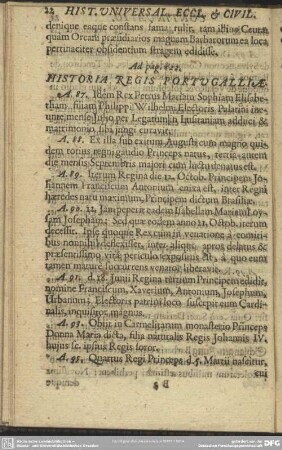 22 HIST. UNIVERSAL. ECCL. & CIVIL.
denique eaque constans fama tulit, tam ibi
quam Orcani præsidiarios magnam Barbarorum ea loca
pertinaciter obsidentium stragem edidisse.
Ad pag. 822.
HISTORIA REGIS PORTUGALLIÆ.
A. 87. Idem Rex Petrus Mariam Sophiam Elisabe-
tham, filiam Philippi Wilhelmi Electoris Palatini ine-
unte mense Julio per Legatum in Lusitaniam adduci &
matrimonio sibi jungi curavit.
A. 88. Ex illa sub exitum Augusti cum magno qui-
dem totius regni gaudio Princeps natus, tertia autem
die mensis Septembris majore cum luctu denatus est.
A. 89. Iterum Regina die 22. Octob. Principem Jo-
hannem Franciscum Antonium enixa est, inter Regni
hæredes natu maximum, Principem dictum Brasiliæ.
A. 90. 22. Jan. peperit eadem Isabellam Mariam
sam Josepham; Sed quæ eodem anno 21. Octob. iterum
decessit. Ipse quoque Rex cum in venatione à comiti-
bus nonnihil deflexisset, inter aliquot apros delatus &
præsentissimo vitæ periculo expositus est, à quo eum
tamen mature succurrens venator liberavit.
A. 91. d. 18. Junii Regina tertium Principem edidit,
nomine Franciscum, Xaverium, Antonium, Josephum,
Urbanum; Electoris patrini loco suscepit eum Cardi-
nalis, inquisitor magnus.
A. 93. Obiit in Carmelitarum monasterio Princeps
Donna Maria dicta, filia naturalis Regis Johannis IV.
hujus sc. ipsius Regis soror.
A. 95. Quartus Regi Princeps d. 5. Martii nascitur,
cui